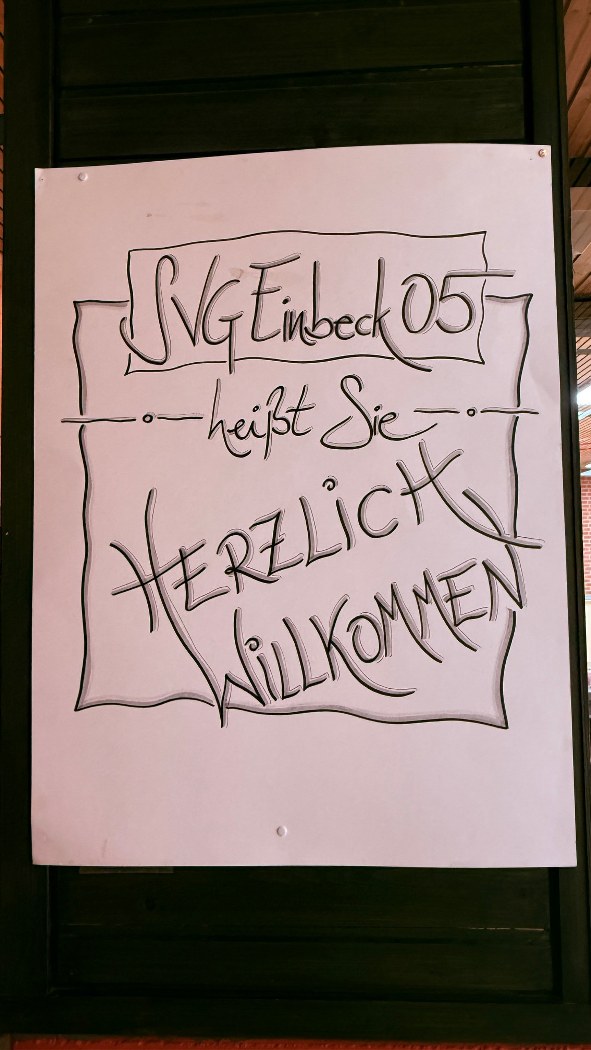 SVG Einbeck 05
heißt Sie
HERZLICH
WILLKOMMEN